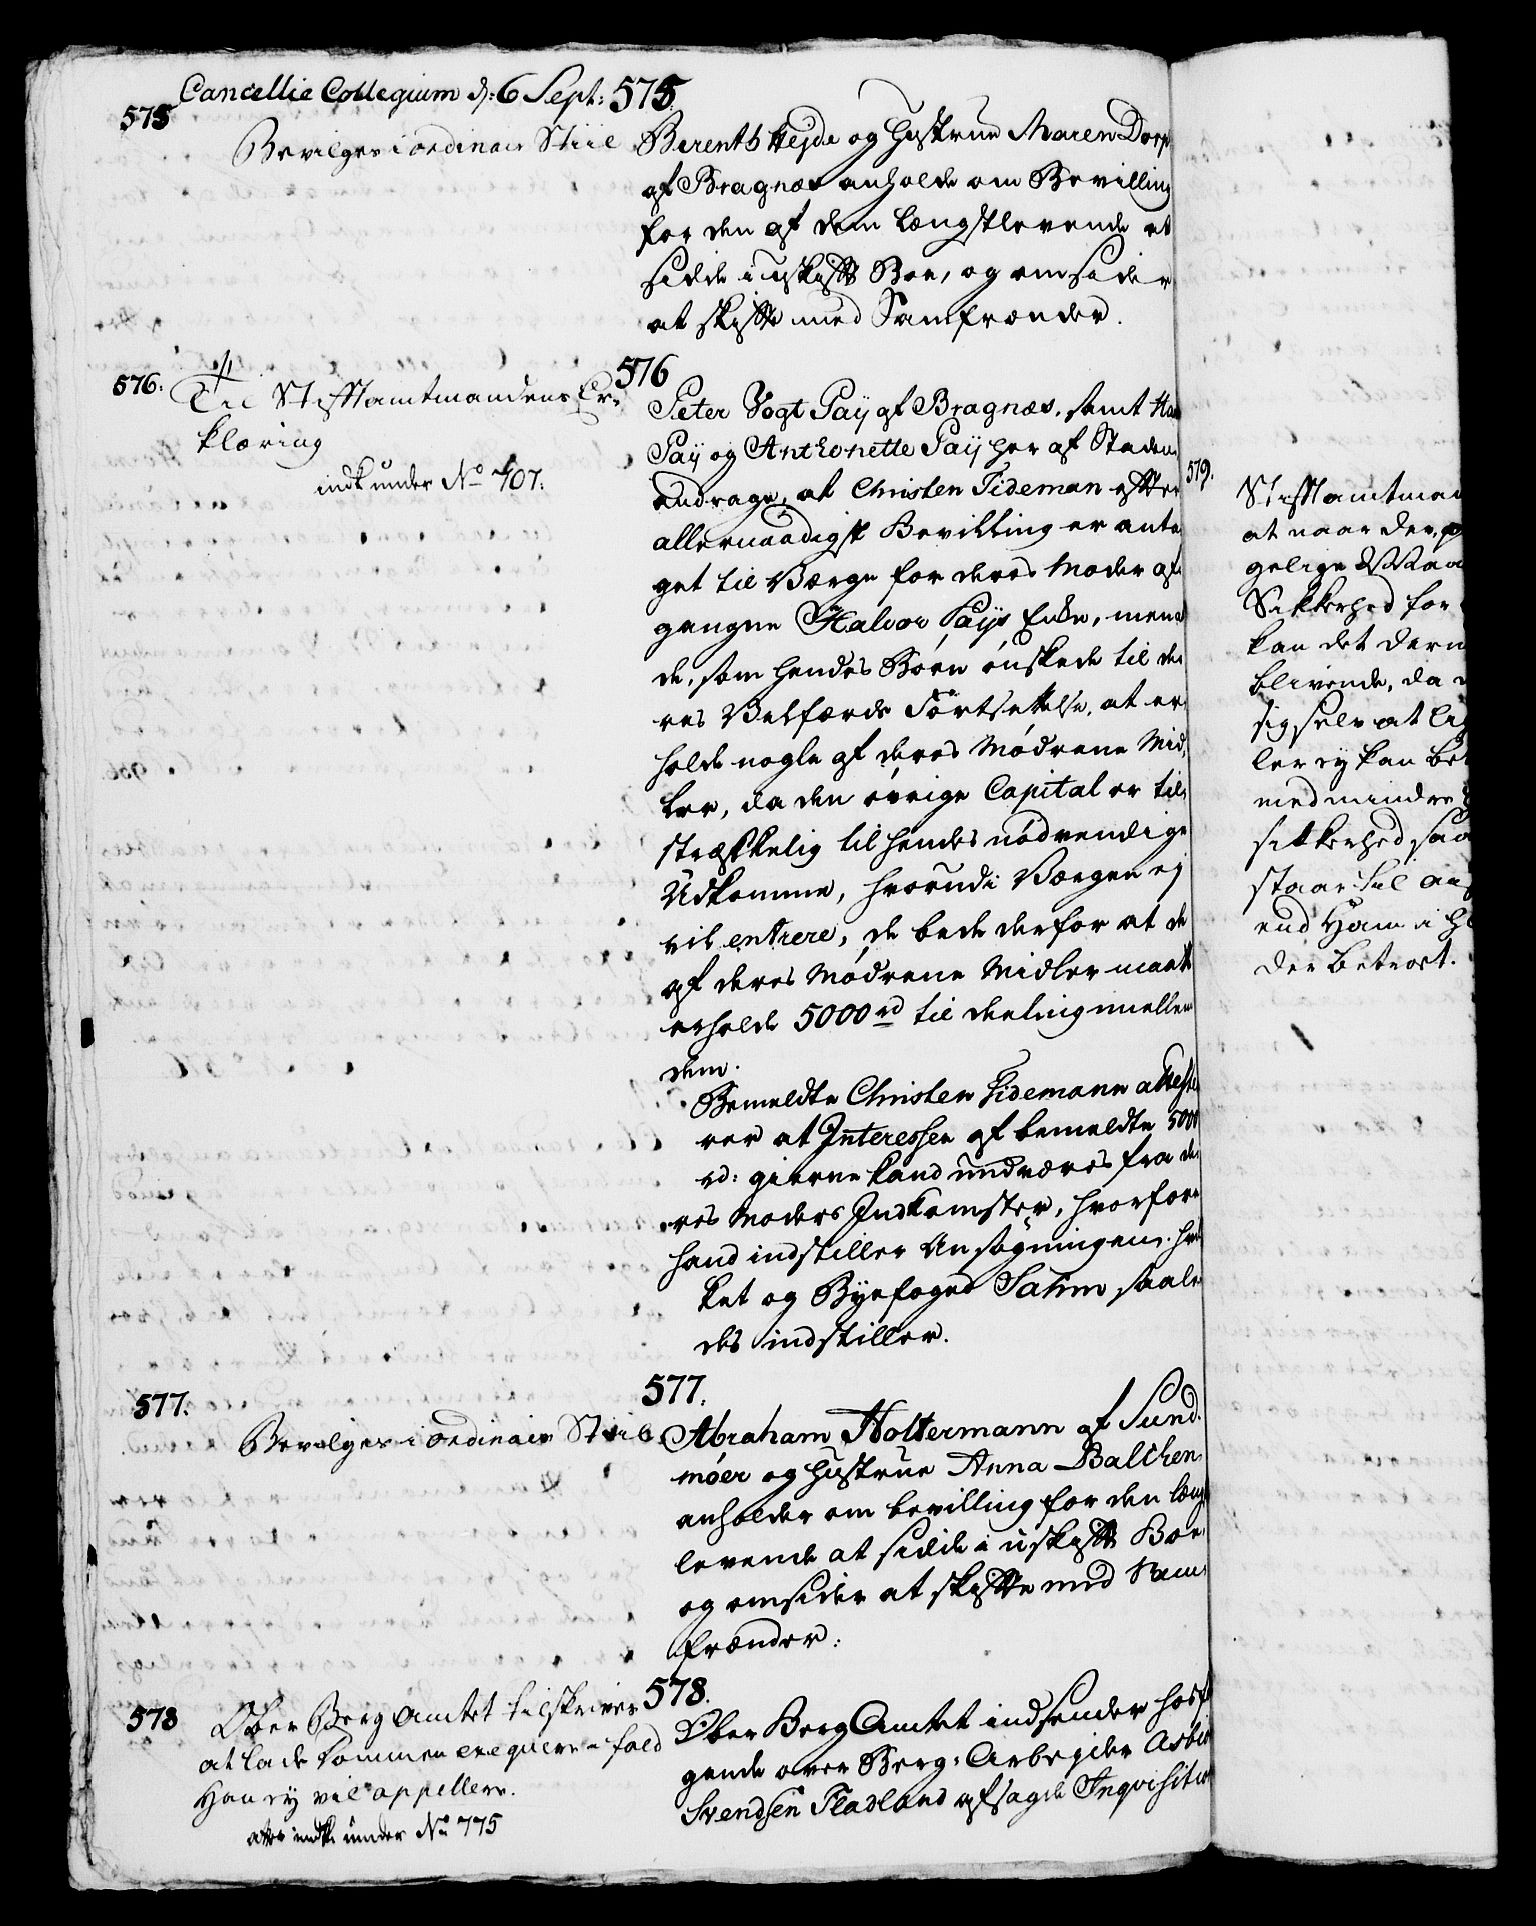 Cancellie Collegium d: 6 Sept:
575
Bevilges i ordinair Stiil
575.
Berenth Hejde og Hustrue Maren Dorp
af Bragnæs anholde om Bevilling
for den af dem længstlevende at
sidde i uskifte Boe, og omsider
at skifte med Samfrænder.
576.
Til Stiftamtmandens Er-
klæring
indk under No 707.
576
Peter Vogt Paÿ af Bragnæs, samt
Paÿ og Anthonette Paÿ her af Staden
andrage, at Christen Tideman efter
allernaadigst Bevilling er anta-
get til Værge for deres Moder af-
gangne Halvor Paÿs Enke, men
de, som hendes Børn ønskede til de-
res Velfærds Fortsættelse, at er-
holde nogle af deres Mødrene Mid-
ler, da den øvrige Capital er til-
strækkelig til hendes nødvendige
Udkomme, hvorudi Værgen ej
vil entrere, de bede derfor at de
af deres Mødrene Midler maatte
erholde 5000 rd til deeling imellem
dem.
Bemeldte Christen Tidemann atteste-
rer at Interessen af bemeldte 5000
rd: gierne kand undværes fra de-
res Moders Indkomster, hvorfore
hand indstiller Ansøgningen. hvil-
ket og Byefoged Sahm saale-
des indstiller.
577.
Bevilges i ordinair Stiil
577.
Abraham Holtermann af Sund-
møer og Hustrue Anna Balchen
anholder om bevilling for den længst-
levende at sidde i uskifte Boe
og omsider at skifte med Sam-
frænder.
578
Ober Berg Amtet tilskrives
at lade Dommen exequere i fald
Han ej vil appellere.
atter indk under No 775
578.
Ober Berg Amtet indsender hosføl-
gende over Berg-Arbejder
Svendsen Fladland afsagde Inquisitions
579.
Stiftamtman
at naar der
gelige
Sikkerhed for
kan det
blivende, da
sig selv at
ler ej kan
med mindre
sikkerhed
staar til
end Ham i
der betroet.